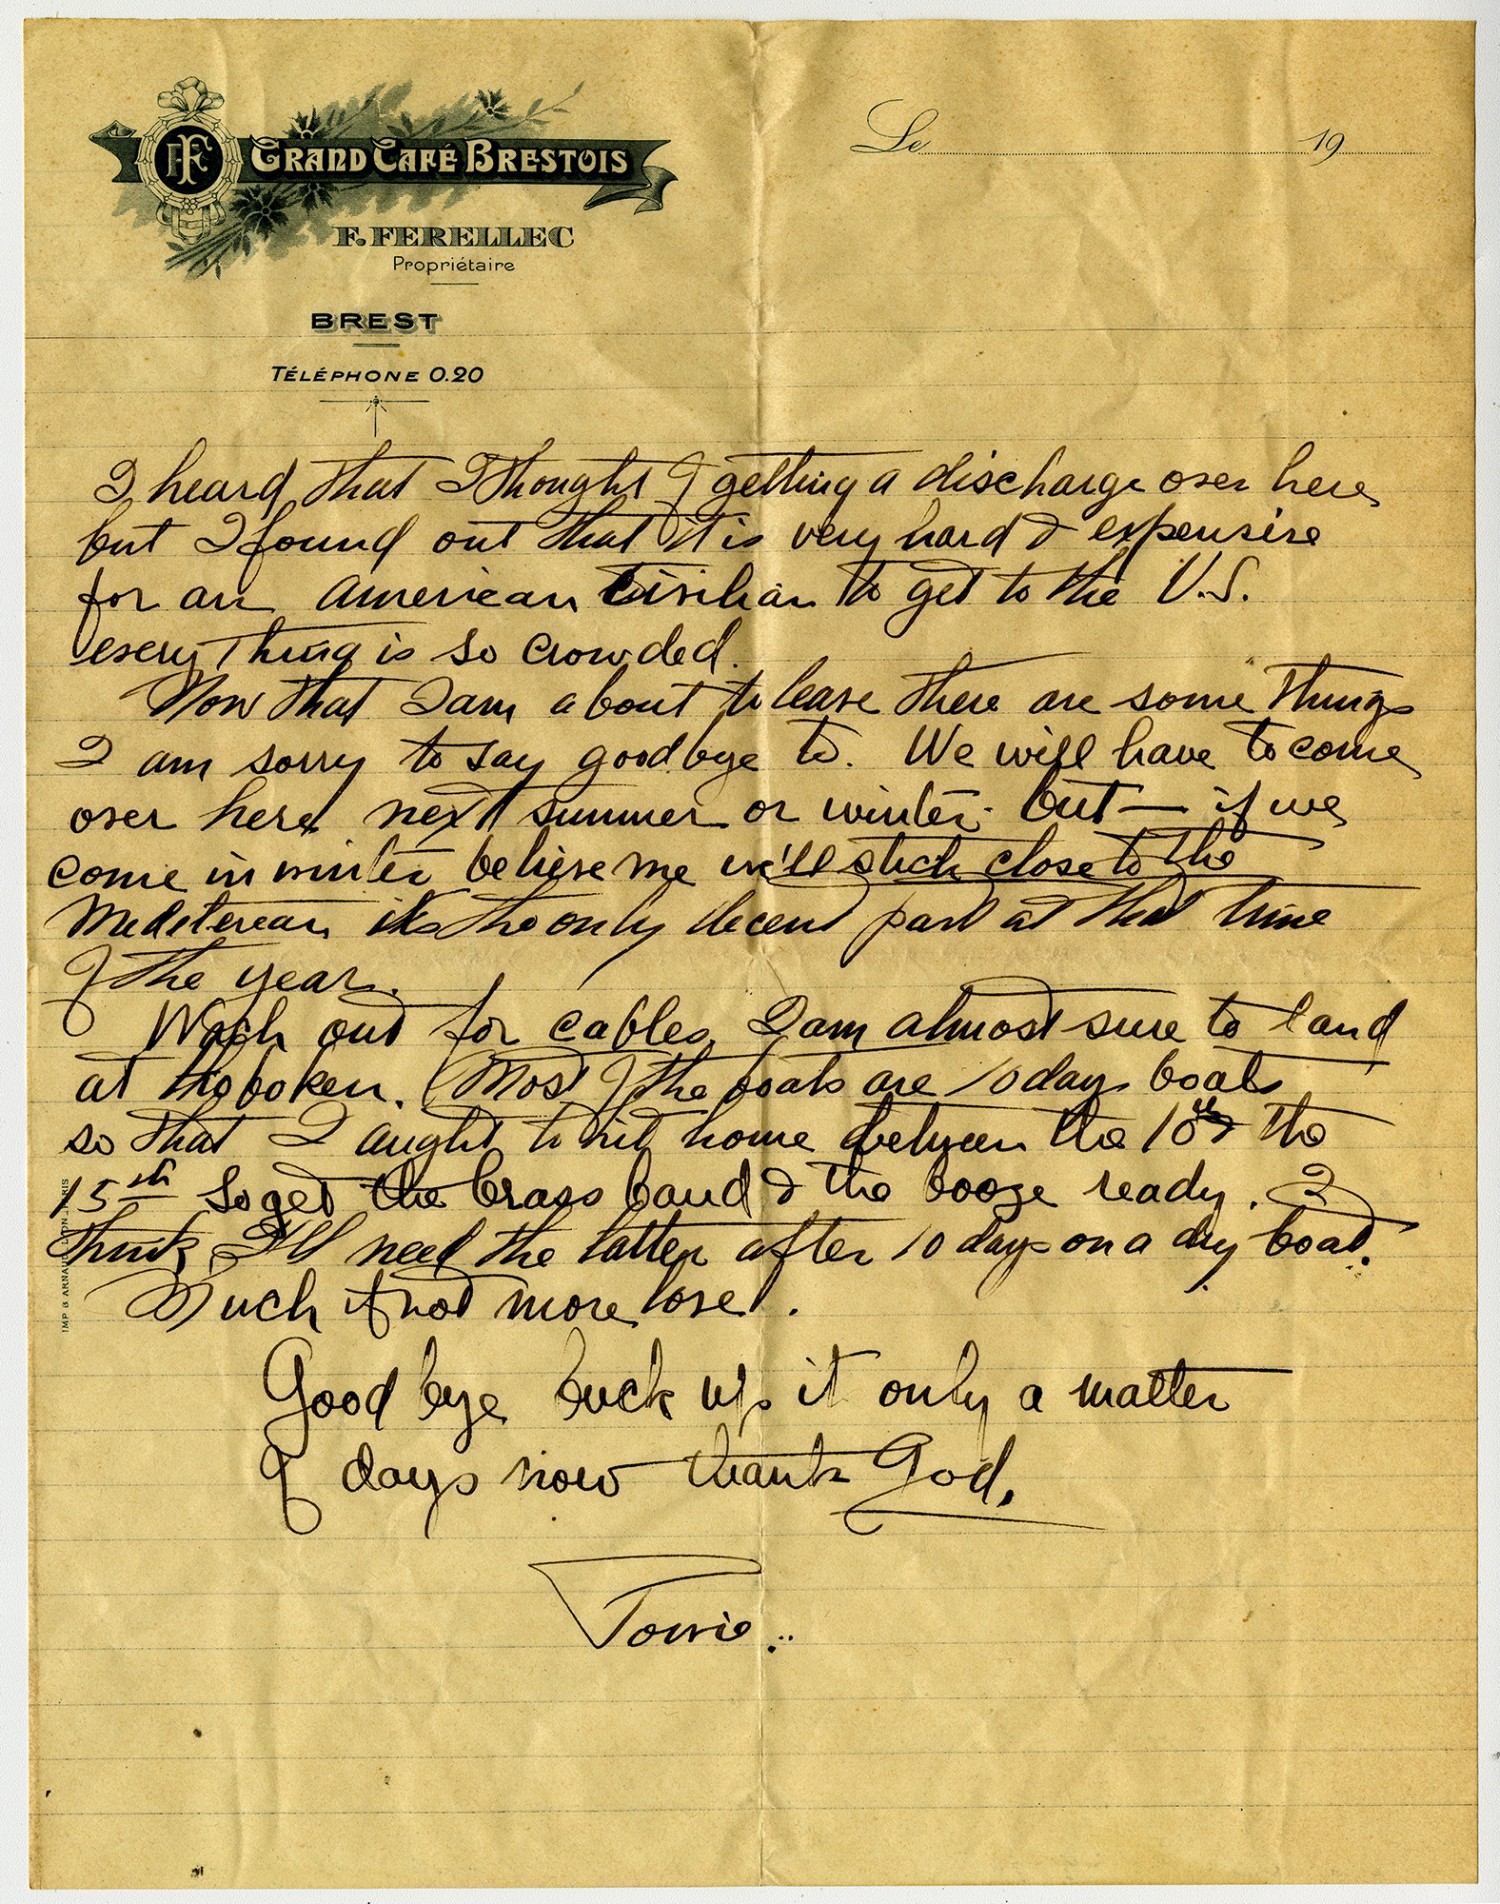 FF
GRAND CAFÉ BRESTOIS
F. FERELLEC
Propriétaire
BREST
TÉLÉPHONE 0.20
Le 19
I heard that I thought of getting a discharge over here
but I found out that it is very hard & expensive
for an American Civilian to get to the U.S.
everything is so crowded.
Now that I am about to leave there are some things
I am sorry to say goodbye to. We will have to come
over here next summer or winter. but — if we
come in winter believe me we'll stick close to the
Mediterean its the only decent part at that time
of the year.
Wach out for cables, I am almost sure to land
at Hoboken. Most of the boats are 10 day boats
so that I aught to hit home between the 10th & the
15th So get the brass band & the booze ready. I
think I'll need the latter after 10 days on a dry boat.
Much if not more love.
Good bye buck up it only a matter
of days now thank God.
IMP